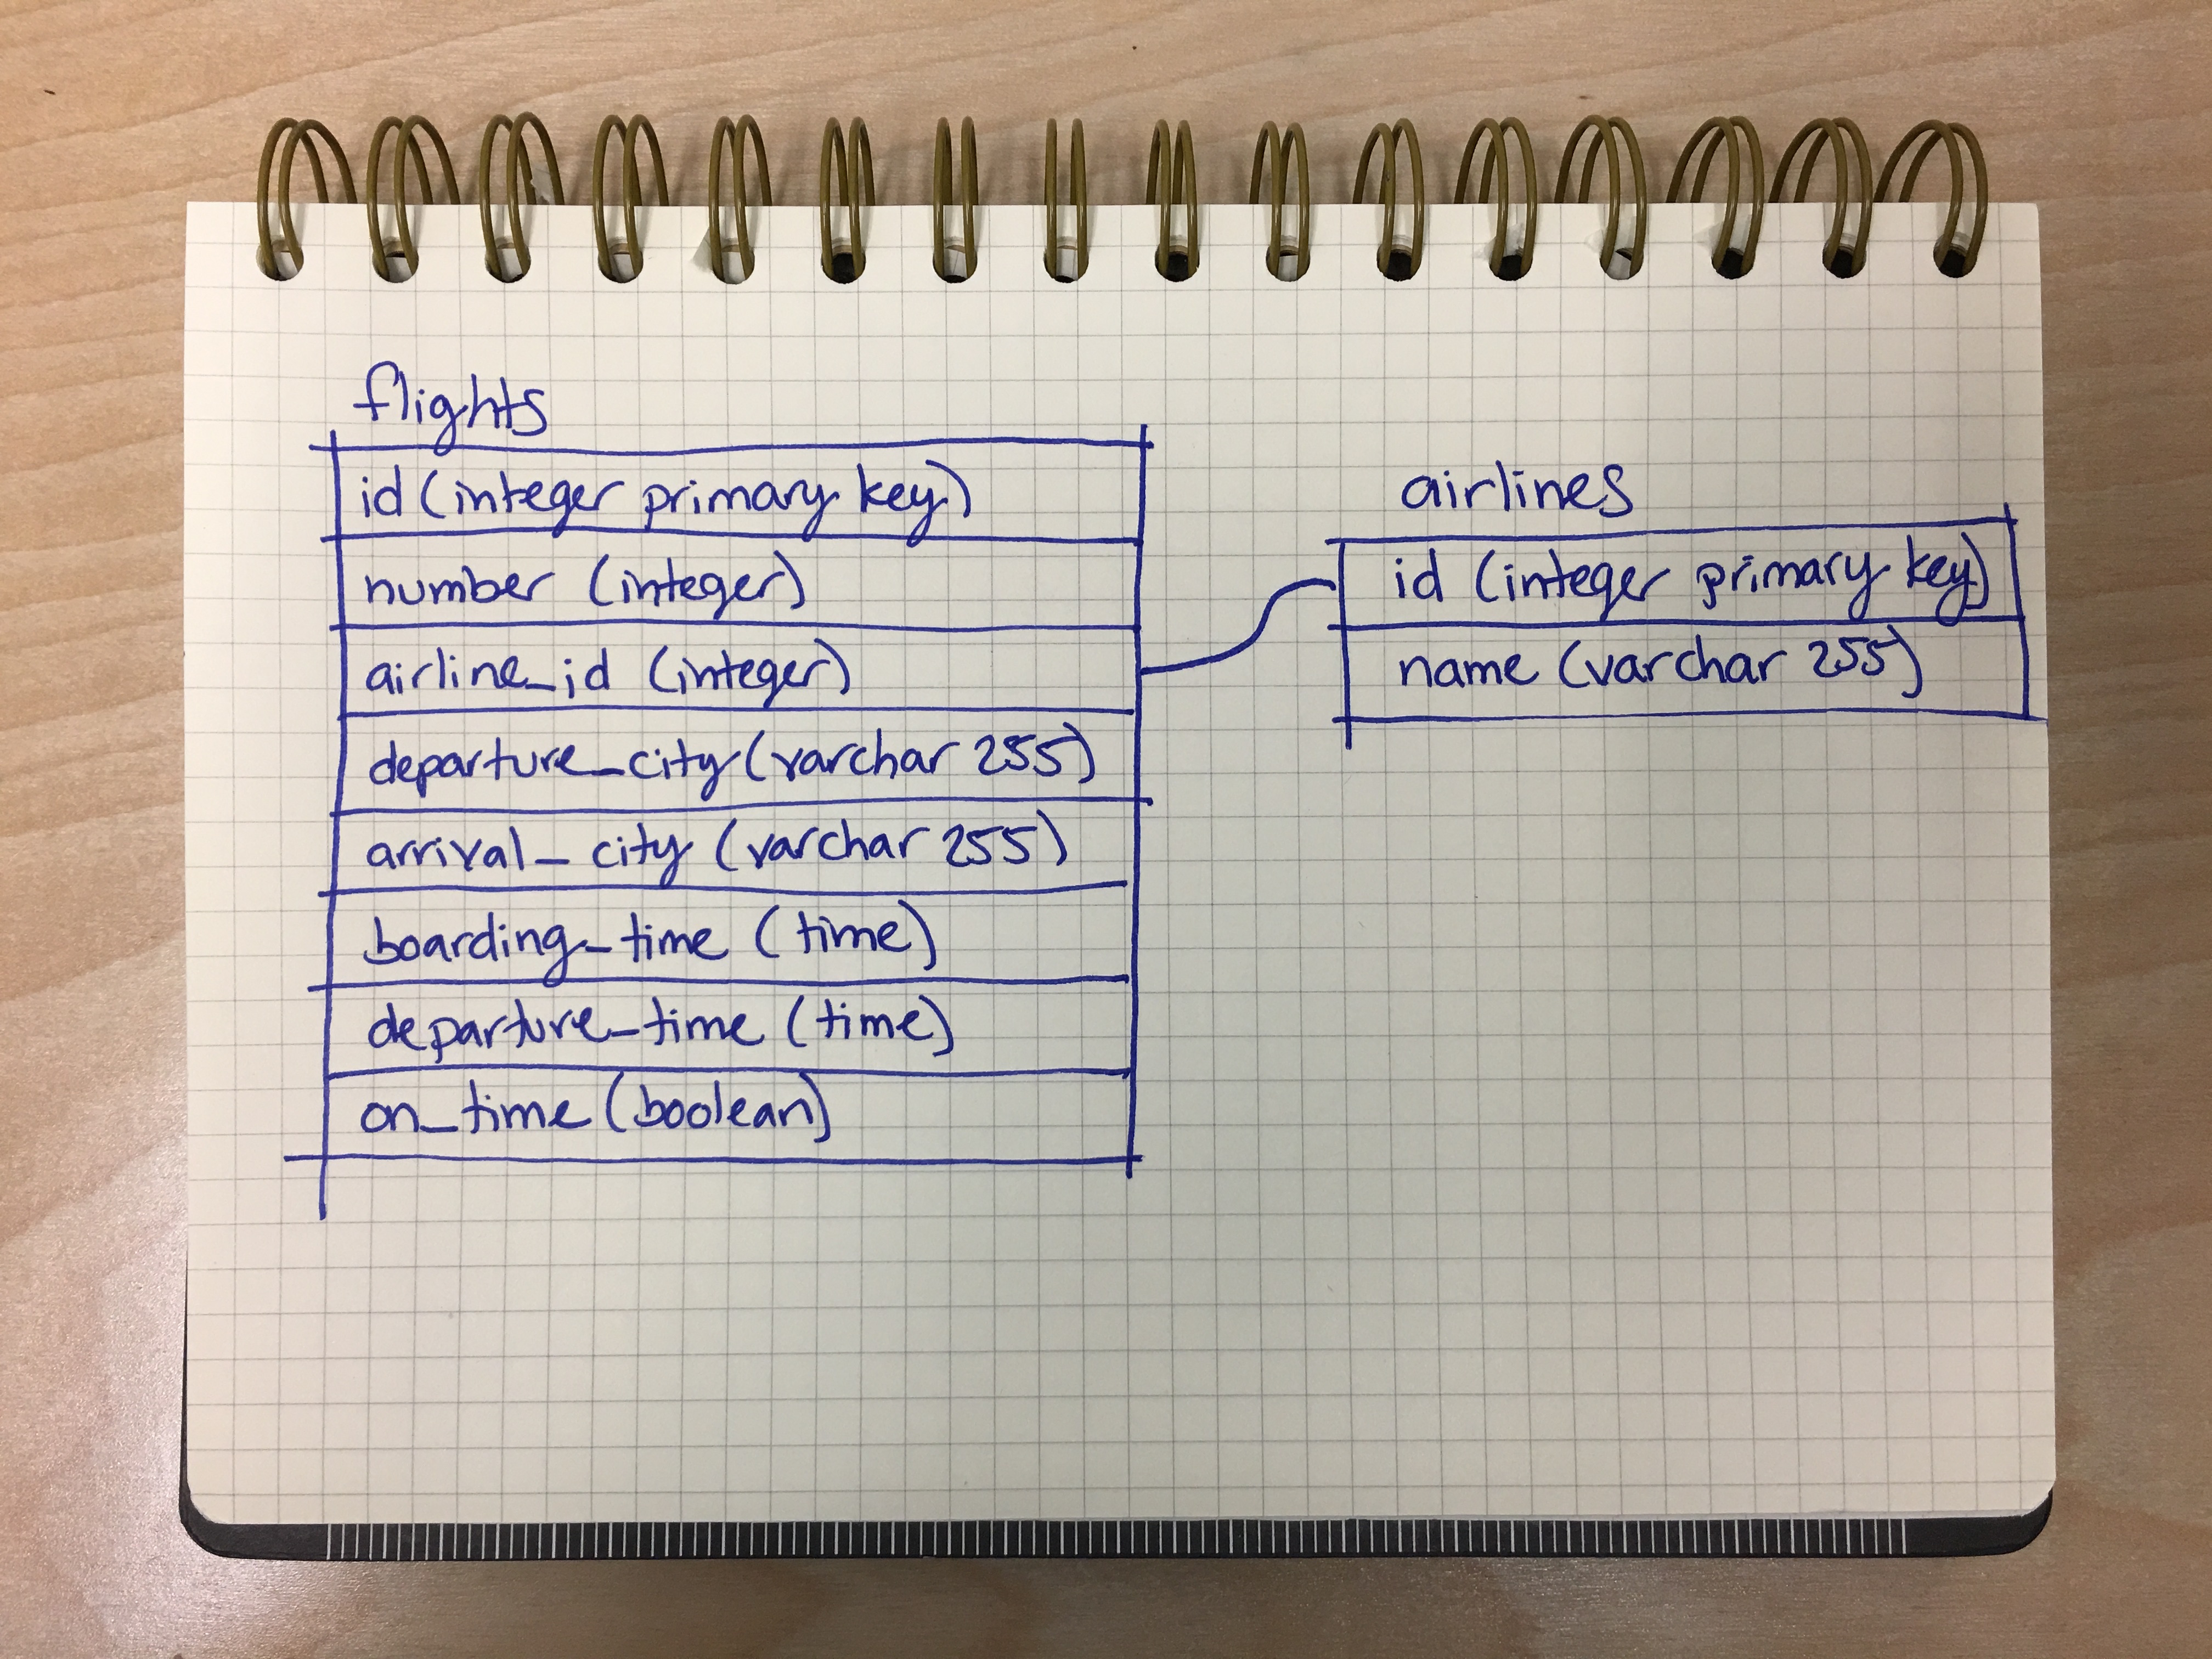 flights
id (integer primary key)
number (integer)
airline_id (integer)
departure_city (varchar 255)
arrival_city (varchar 255)
boarding_time (time)
departure_time (time)
on_time (boolean)
airlines
id (integer primary key)
name (varchar 255)